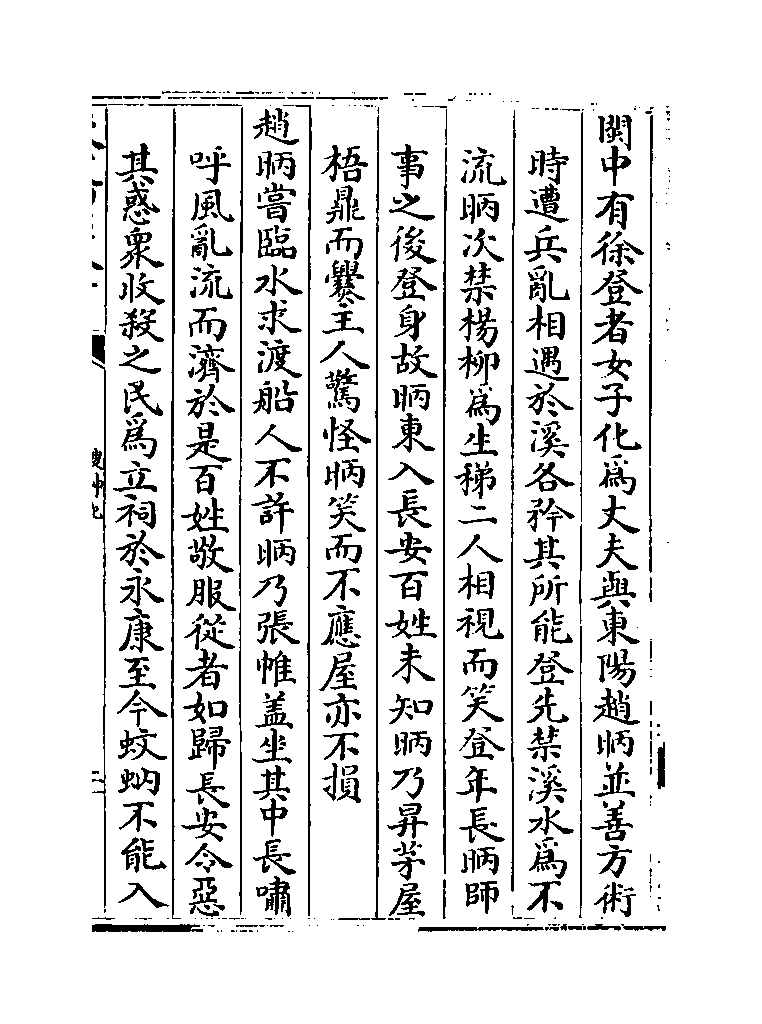 閩中有徐登者女子化爲丈夫與東陽趙昞並善方術
時遭兵亂相遇於溪各矜其所能登先禁溪水爲不
流昞次禁楊柳爲生稊二人相視而笑登年長昞師
事之後登身故昞東入長安百姓未知昞乃昇茅屋
梧鼎而爨主人驚怪昞笑而不應屋亦不損
趙昞嘗臨水求渡船人不許昞乃張帷盖坐其中長嘯
呼風亂流而濟於是百姓敬服從者如歸長安令惡
其惑衆收殺之民爲立祠於永康至今蚊蚋不能入